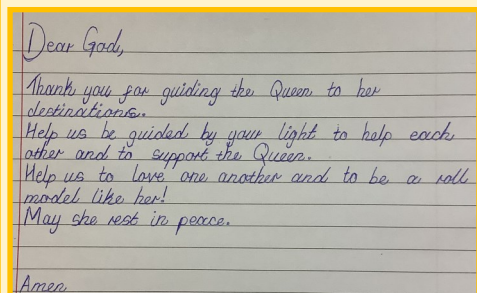 Dear God,
Thank you for guiding the Queen to her
destinations.
Help us be guided by your light to help each
other and to support the Queen.
Help us to love one another and to be a roll
model like her!
May she rest in peace.
Amen